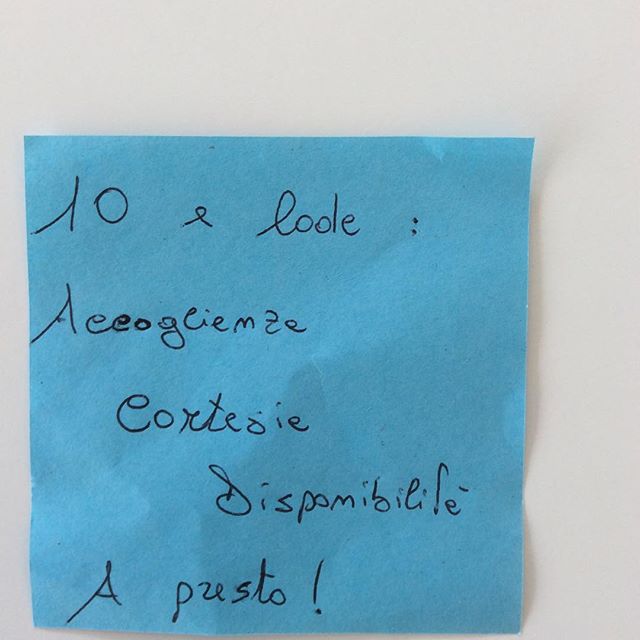 10 e lode :
Accoglienza
Cortesia
Disponibilità
A presto!